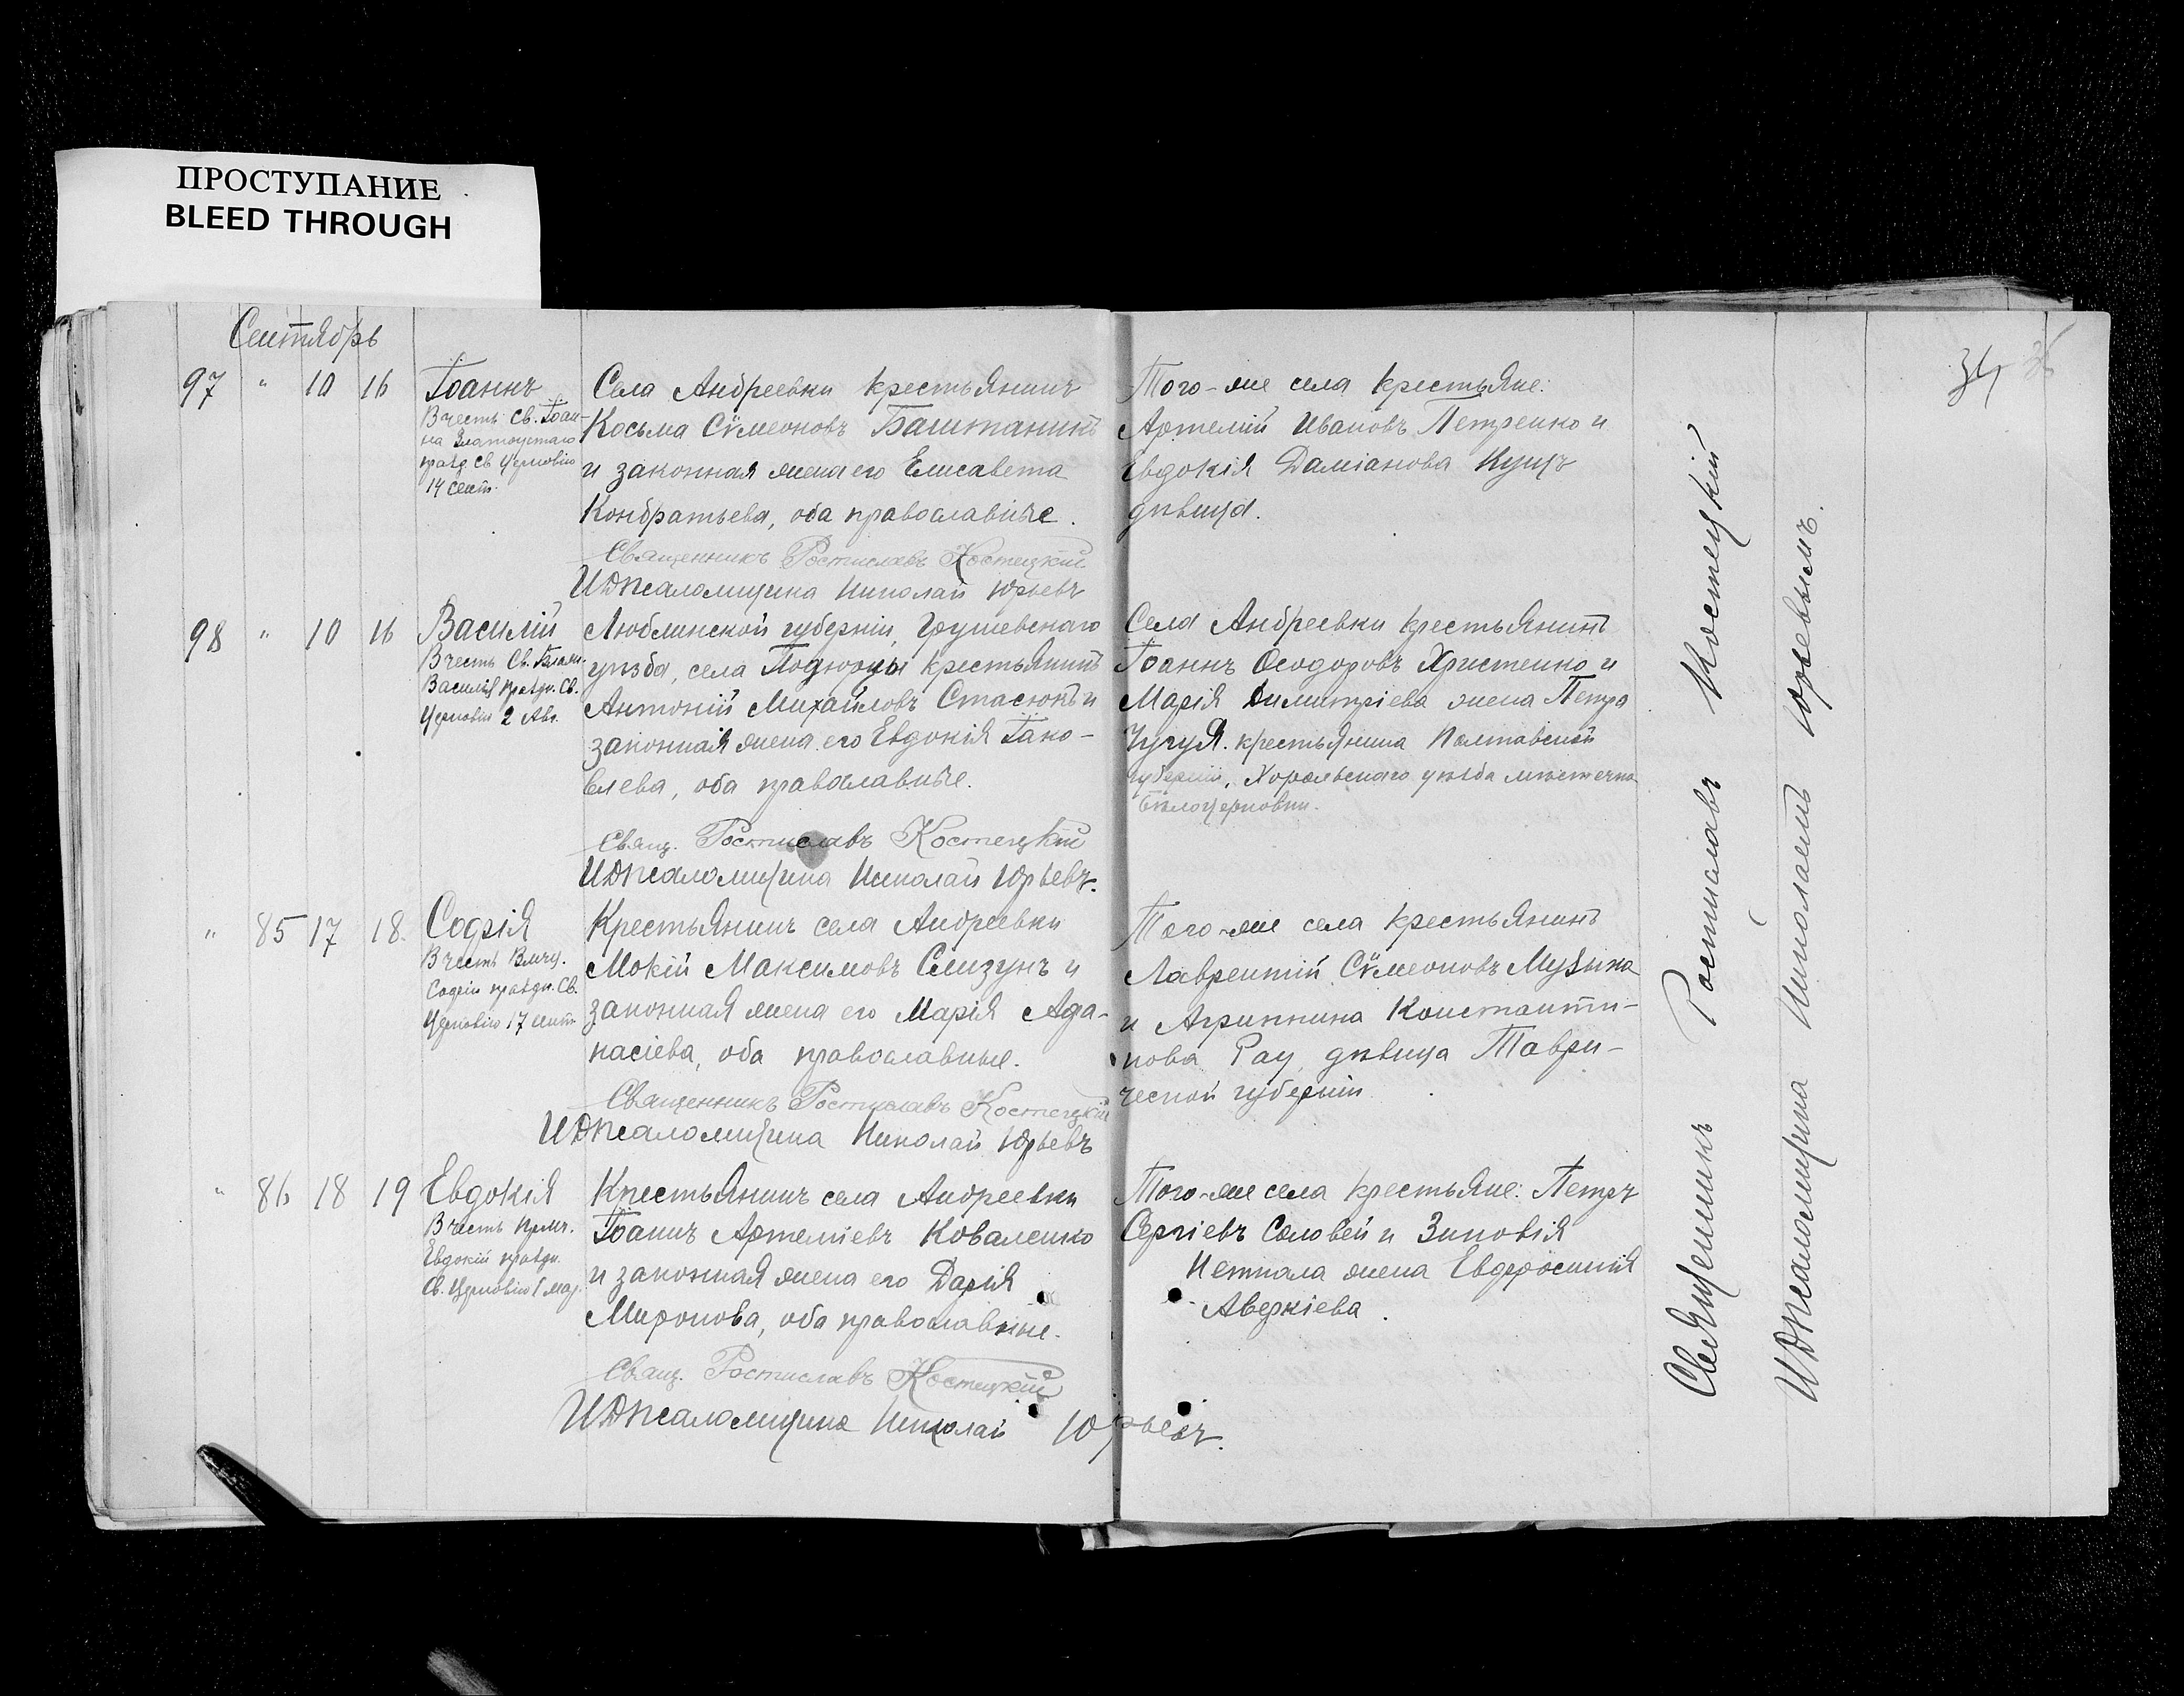 ПРОСТУПАНИЕ
BLEED THROUGH
Сентябрь
97 " 10 16
Іоаннъ
В честь Св. Іоан-
на Златоустаго
празд. Св. Церковію
14 Сент.
Села Андреевки крестьянинъ
Косьма Сѵмеоновъ Баштаникъ
и законная жена его Елисавета
Кондратьева, оба православные.
Священникъ Ростиславъ Костецкій
И Д Псаломщика Николай Юрьевъ
Того-же села крестьяне:
Артемій Ивановъ Петренко и
Евдокія Даміанова Куцъ
дѣвица.
98 " 10 16
Василій
В честь Св. Блаж.
Василія праздн. Св.
Церковію 2 Авг.
Люблинской губерніи, Грушевскаго
уѣзда, села крестьянинъ
Антоній Михайловъ Стасюкъ и
законная жена его Евдокія Іако-
влева, оба православные.
Свящ. Ростиславъ Костецкій
И Д Псаломщика Николай Юрьевъ.
Села Андреевки крестьянинъ
Іоаннъ Ѳеодоровъ Христенко и
Марія Димитріева жена Петра
Чугуя. крестьянина Полтавской
губерніи, Хорольскаго уѣзда мѣстечка
Бѣлоцерковки.
" 85 17 18.
Софія
В честь Влмчц.
Софіи праздн. Св.
Церковію 17 сент.
Крестьянинъ села Андреевки
Мокій Максимовъ Слизунъ и
законная жена его Марія Афа-
насіева, оба православные.
Священникъ Ростиславъ Костецкій
И Д Псаломщика Николай Юрьевъ
Того-же села крестьянинъ
Лаврентій Сѵмеоновъ Музыка
и Агриппина Константи-
нова Рау, дѣвица Таври-
ческой губерніи.
" 86 18 19
Евдокія
В честь Прмч.
Евдокіи праздн.
Св. Церковію 1 мар.
Крестьянинъ села Андреевки
Іоаннъ Артеміевъ Коваленко
и законная жена его Дарія
Миронова, оба православные.
Свящ. Ростиславъ Костецкій
И Д Псаломщика Николай Юрьевъ.
Того-же села крестьяне: Петръ
Сергіевъ Соловей и Зиновія
Неткала жена Евфросинія
Аверкіева.
Священникъ Ростиславъ Костецкій
И Д Псаломщика Николаемъ Юрьевымъ.
34